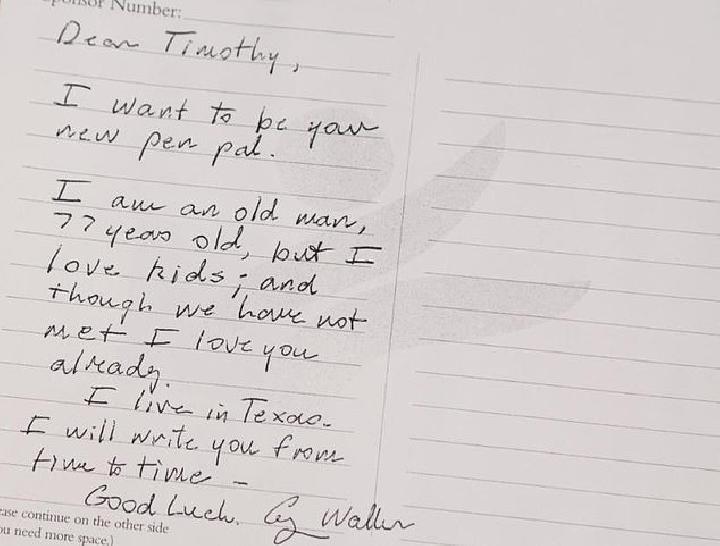 ponsor Number:
Dear Timothy,
I want to be your
new pen pal.
I am an old man,
77 years old, but I
love kids; and
though we have not
met I love you
already.
I live in Texas.
I will write you from
time to time –
Good Luck. Walker
ase continue on the other side
ou need more space.)